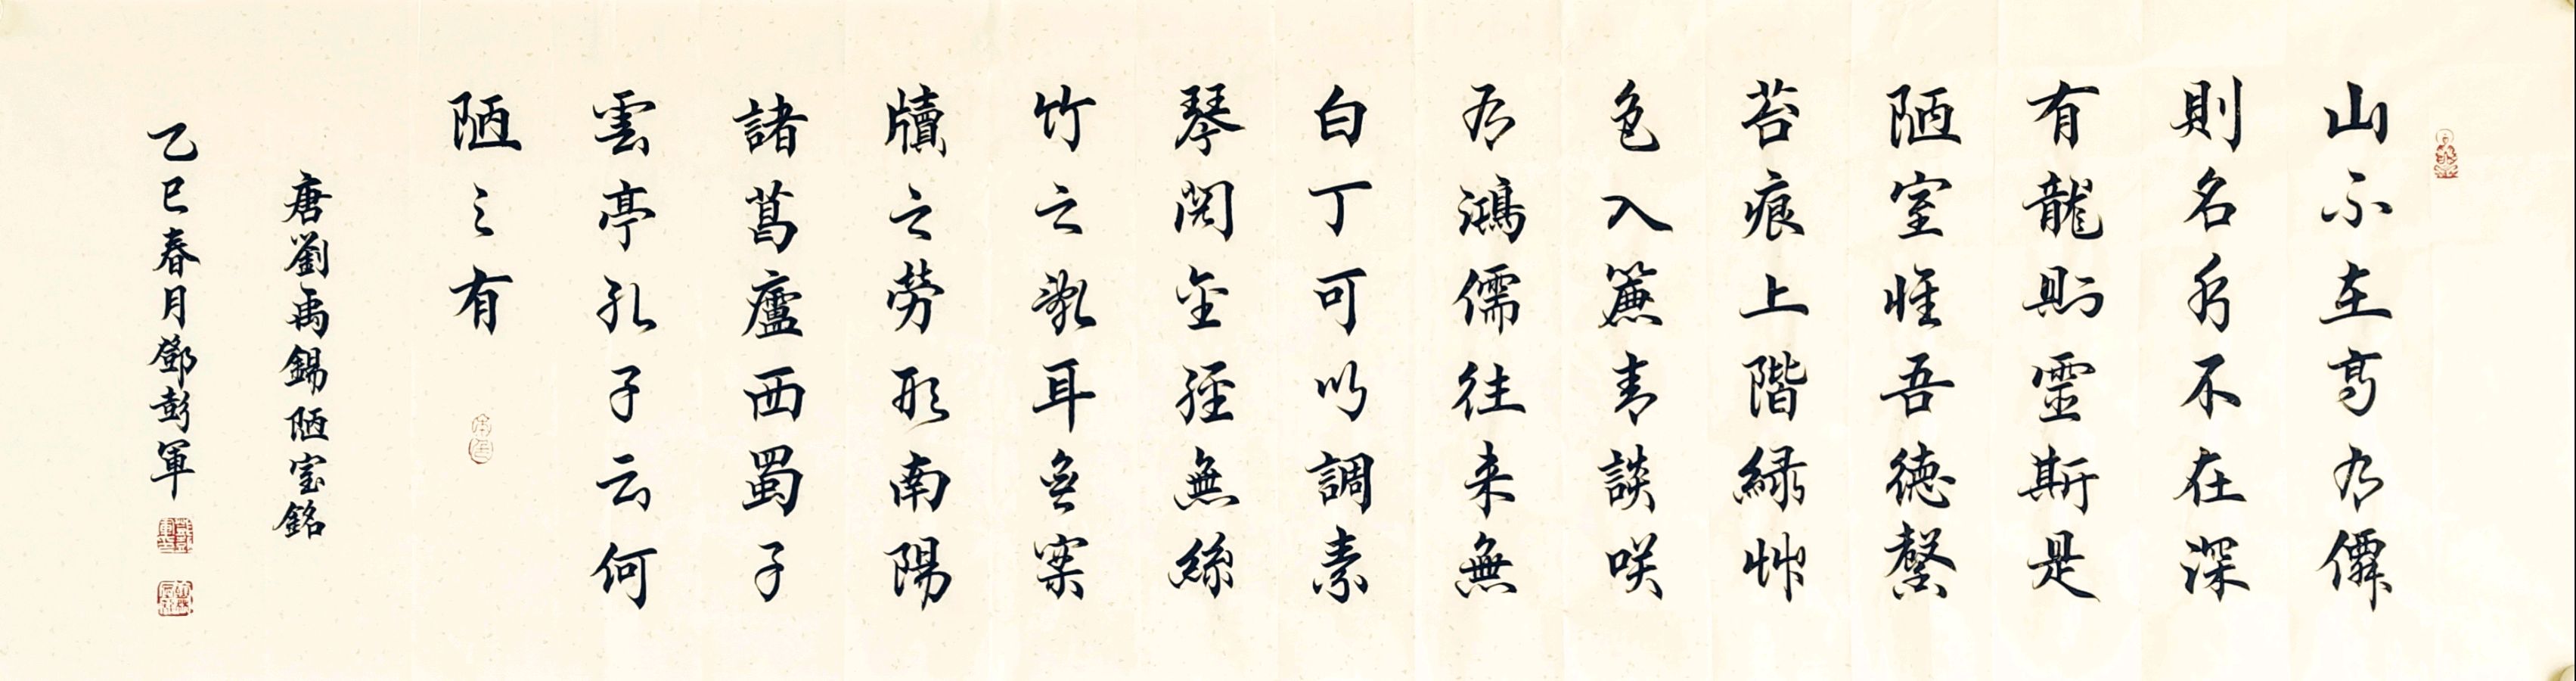 山不在高有僊
則名水不在深
有龍則靈斯是
陋室惟吾德馨
苔痕上階綠艸
色入簾青談咲
有鴻儒往来無
白丁可以調素
琴閱金經無絲
竹之亂耳無案
牘之勞形南陽
諸葛廬西蜀子
雲亭孔子云何
陋之有
唐劉禹錫陋室銘
乙巳春月鄧彭軍